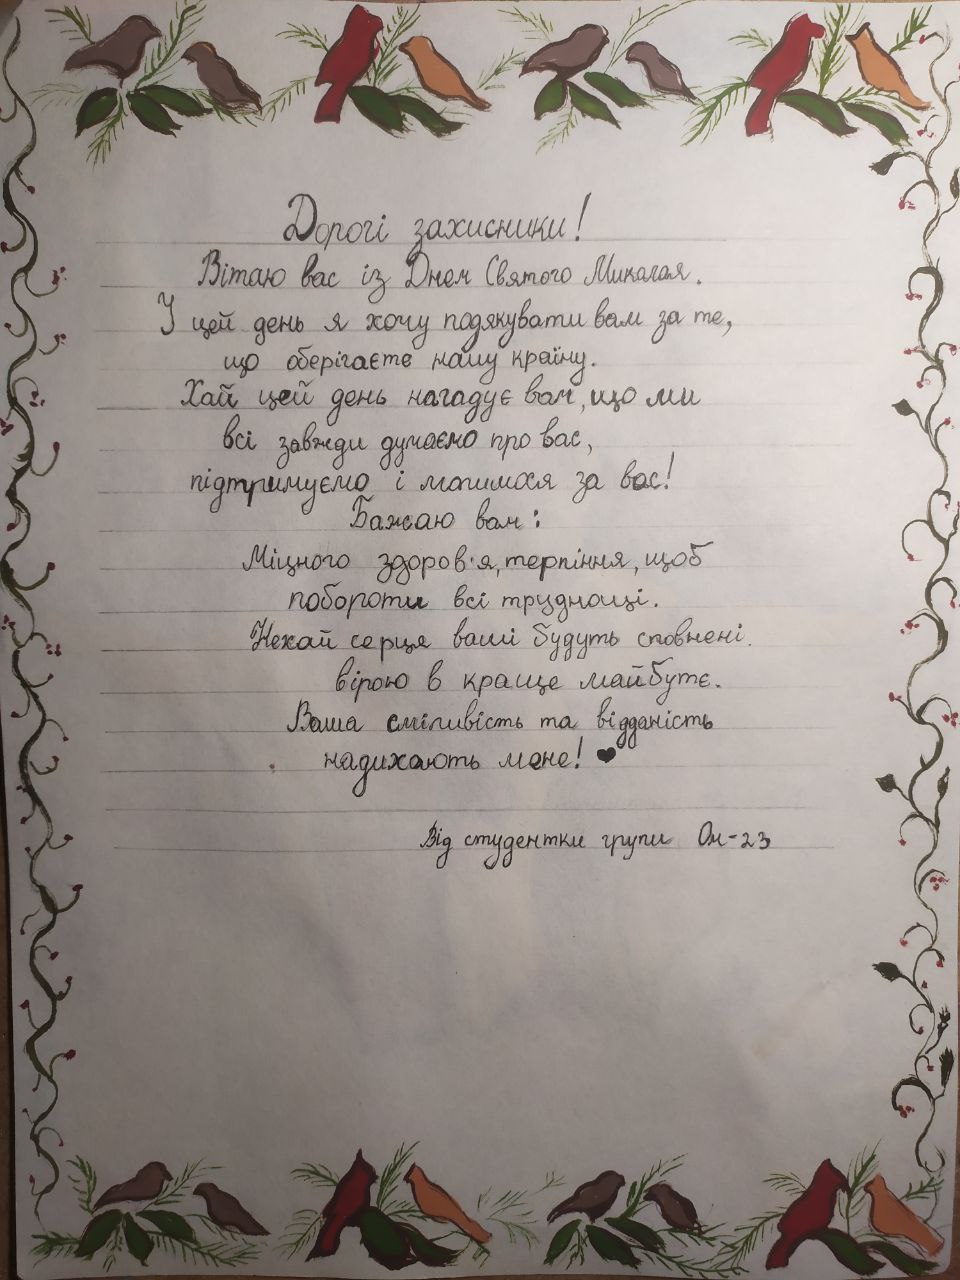 Дорогі захисники!
Вітаю вас із Днем Святого Миколая.
У цей день я хочу подякувати вам за те,
що оберігаєте нашу країну.
Хай цей день нагадує вам, що ми
всі завжди думаємо про вас,
підтримуємо і молимося за вас!
Бажаю вам:
Міцного здоров'я, терпіння, щоб
побороти всі труднощі.
Нехай серця ваші будуть сповнені.
вірою в краще майбутє.
Ваша сміливість та відданість
надихають мене! ❤
Від студентки групи Ом-23